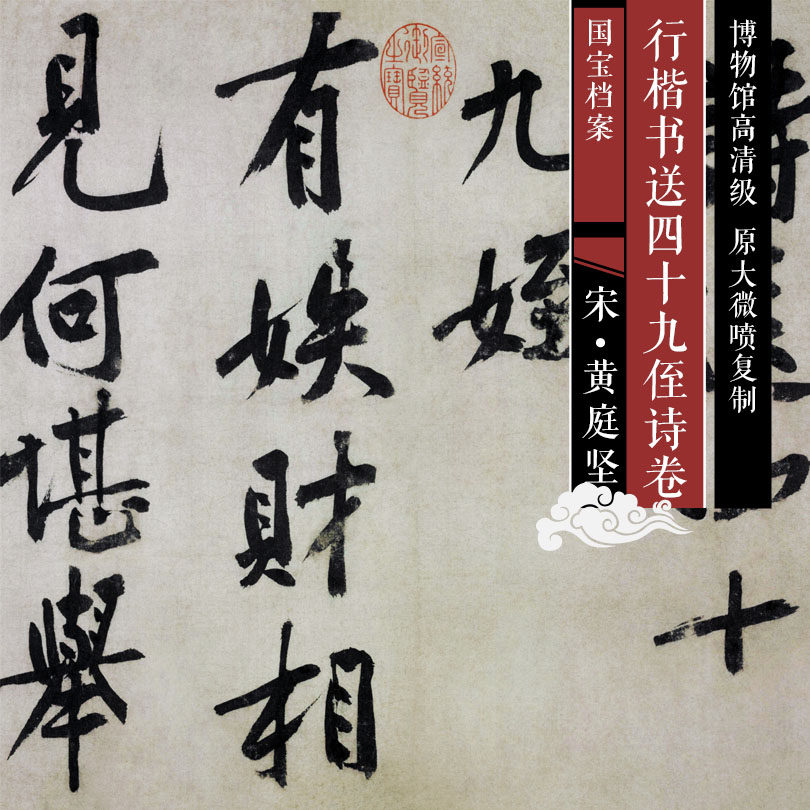 博物馆高清级 原大微喷复制
行楷书送四十九侄诗卷
国宝档案
宋·黄庭坚
十
九姪
有娛財相
見何堪舉
宣統御覽之寶